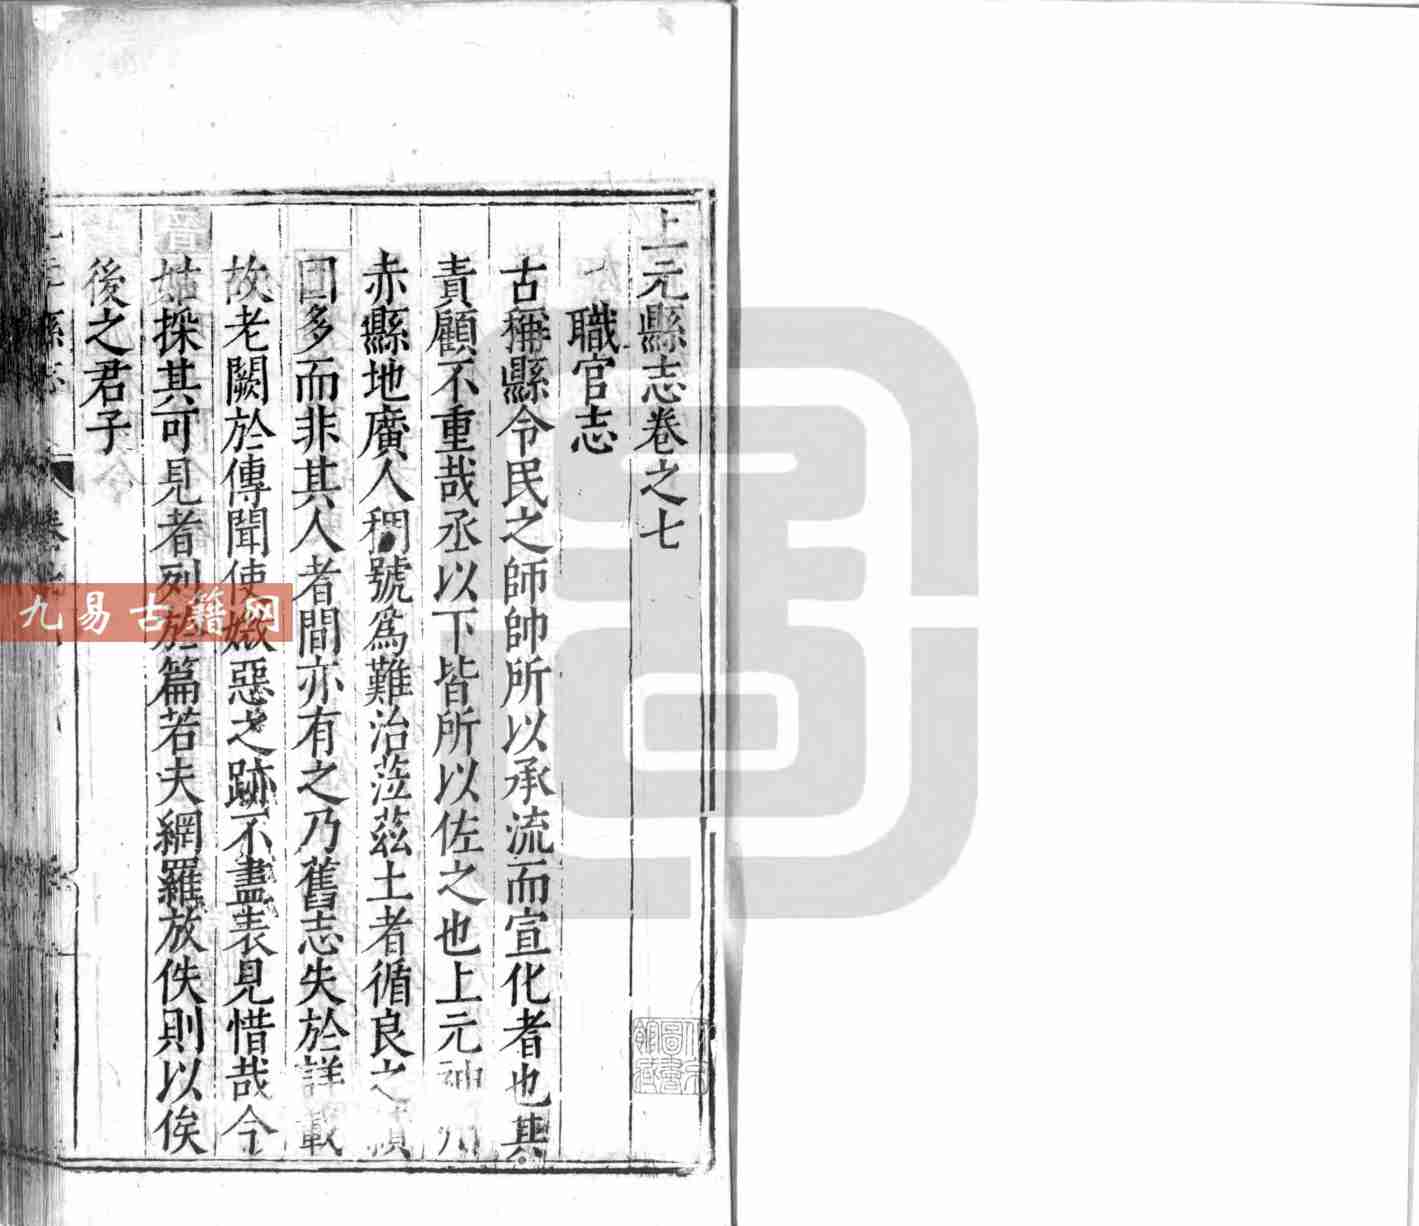 上元縣志卷之七
職官志
古稱縣令民之師帥所以承流而宣化者也其
責顧不重哉丞以下皆所以佐之也上元神州
赤縣地廣人稠號爲難治蒞茲土者循良之績
固多而非其人者間亦有之乃舊志失於詳載
故老闕於傳聞使媺惡之跡不盡表見惜哉今
姑採其可見者列於篇若夫網羅放佚則以俟
後之君子
九易古籍网